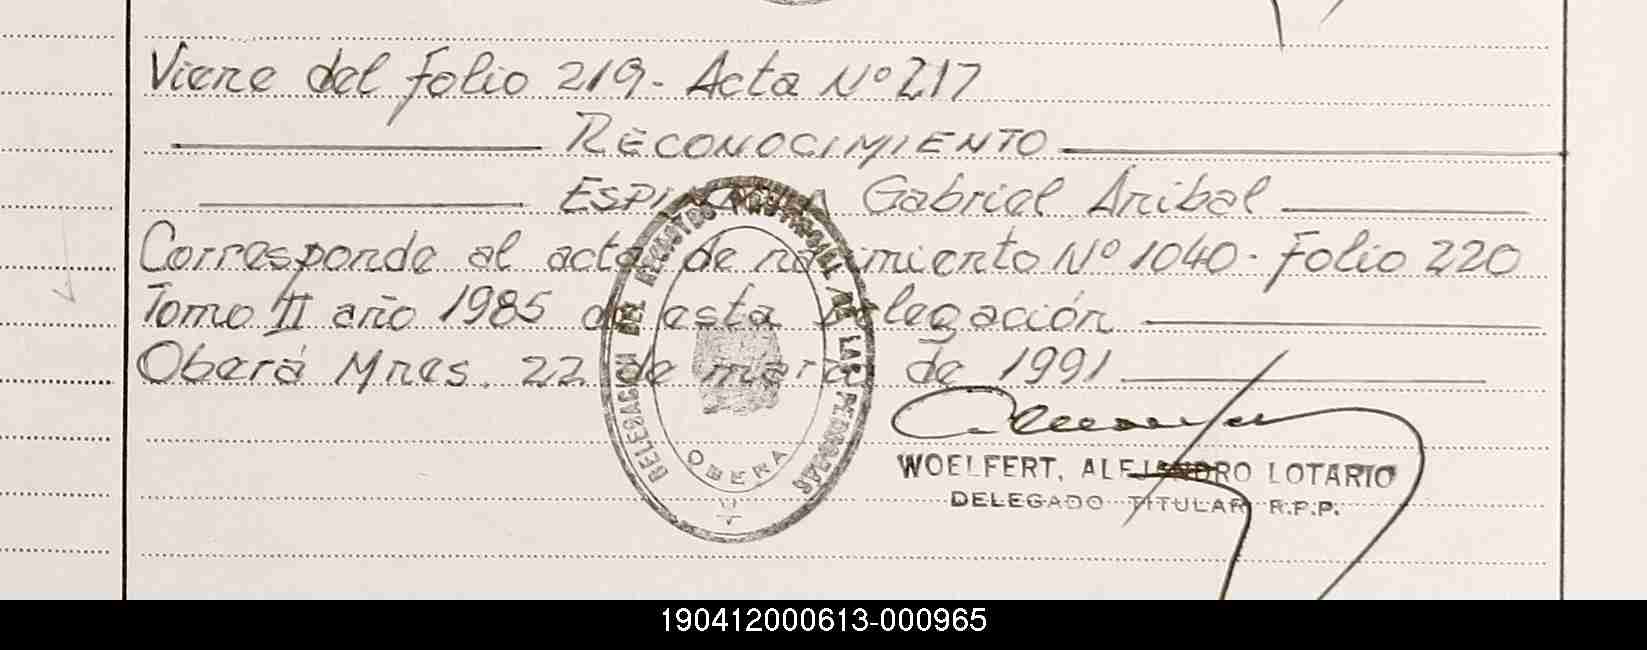 Viene del folio 219 - Acta Nº 217
RECONOCIMIENTO
Gabriel Anibal
Corresponde al acta de nacimiento Nº 1040 - Folio 220
Tomo II año 1985 de esta Delegación
Oberá Mnes. 22 de marzo de 1991
DELEGACION DEL REGISTRO PROVINCIAL DE LAS PERSONAS
OBERA
WOELFERT, ALEJANDRO LOTARIO
DELEGADO TITULAR R.P.P.
190412000613-000965